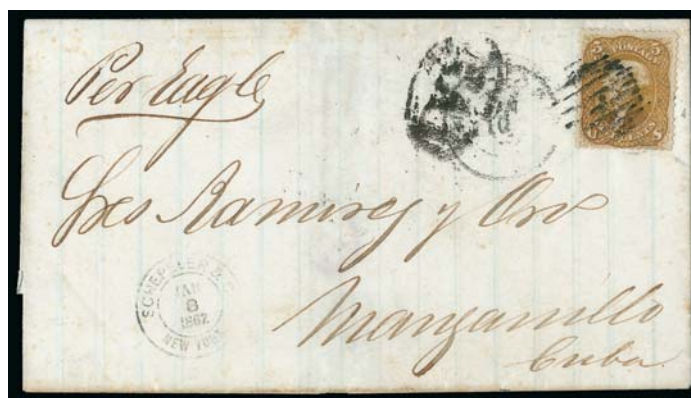 Per Eagle
5 5
Sres Ramirez y Oro
SCHEPELER & C
JAN
8
1862
NEW YORK
Manzanillo
Cuba